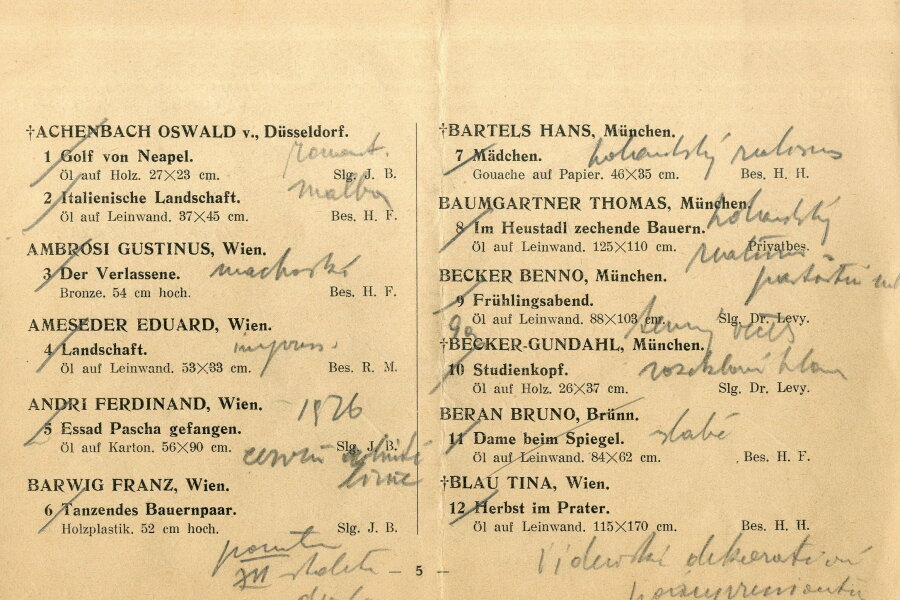 †ACHENBACH OSWALD v., Düsseldorf.
1 Golf von Neapel.
romant.
Öl auf Holz. 27×23 cm. Slg. J. B.
malba
2 Italienische Landschaft.
Öl auf Leinwand. 37×45 cm. Bes. H. F.
AMBROSI GUSTINUS, Wien.
3 Der Verlassene.
Bronze. 54 cm hoch. Bes. H. F.
AMESEDER EDUARD, Wien.
4 Landschaft. impress.
Öl auf Leinwand. 53×33 cm. Bes. R. M.
ANDRI FERDINAND, Wien. 1926
5 Essad Pascha gefangen.
Öl auf Karton. 56×90 cm. Slg. J. B.
BARWIG FRANZ, Wien.
6 Tanzendes Bauernpaar.
Holzplastik. 52 cm hoch. Slg. J. B.
†BARTELS HANS, München.
7 Mädchen. holandský
Gouache auf Papier. 46×35 cm. Bes. H. H.
BAUMGARTNER THOMAS, München.
holandský
8 Im Heustadl zechende Bauern.
Öl auf Leinwand. 125×110 cm. Privatbes.
BECKER BENNO, München.
9 Frühlingsabend.
Öl auf Leinwand. 88×103 cm. Slg. Dr. Levy.
9a
†BECKER-GUNDAHL, München.
10 Studienkopf.
Öl auf Holz. 26×37 cm. Slg. Dr. Levy.
BERAN BRUNO, Brünn.
11 Dame beim Spiegel. slabé
Öl auf Leinwand. 84×62 cm. Bes. H. F.
†BLAU TINA, Wien.
12 Herbst im Prater.
Öl auf Leinwand. 115×170 cm. Bes. H. H.
Vídeňský dekorativní
— 5 —